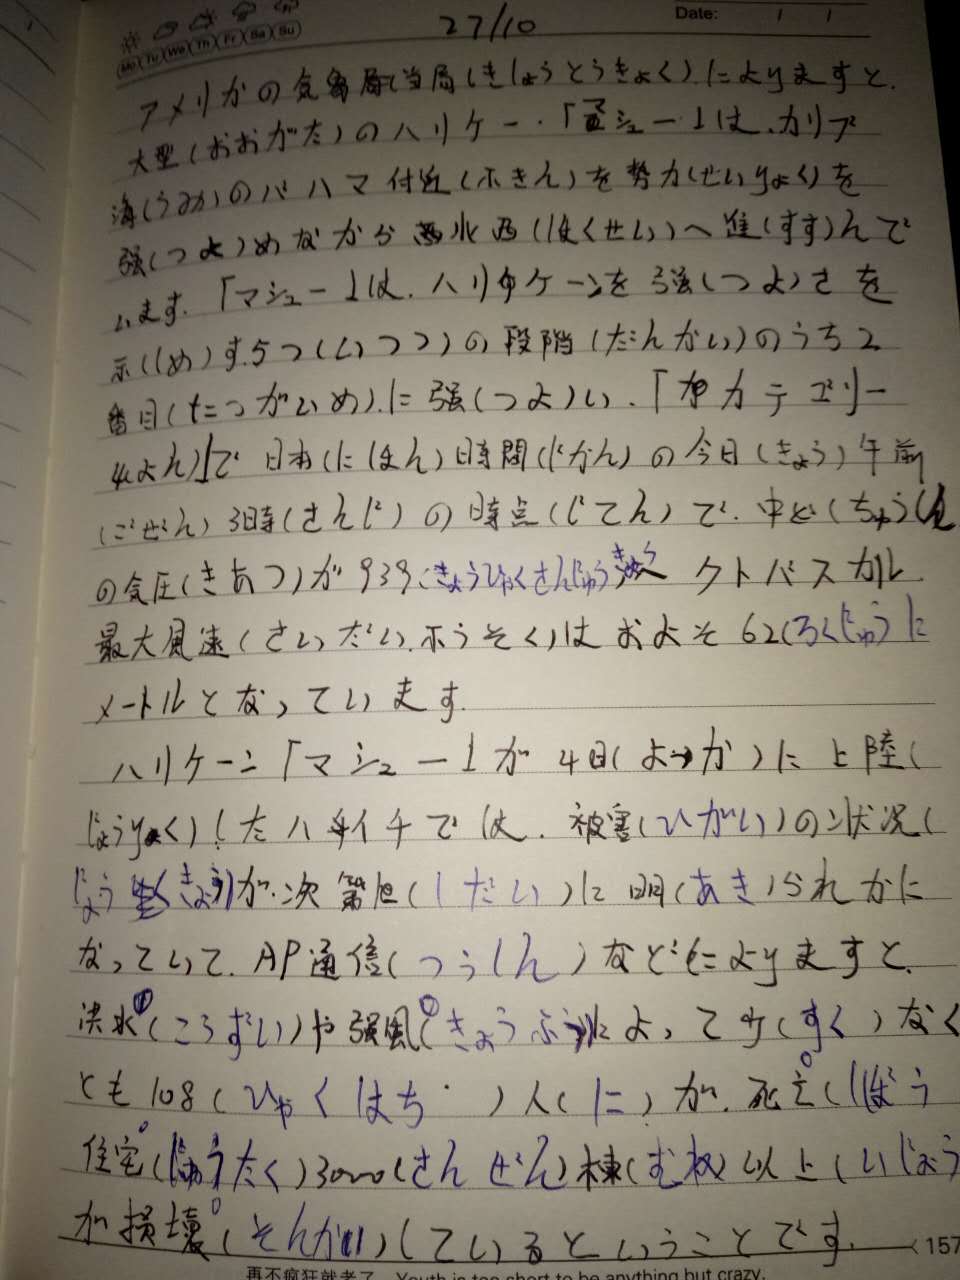 Mo Tu We Th Fr Sa Su
27/10
Date: / /
アメリカの気象局(当局(きしょうとうきょく)によりますと、
大型(おおがた)のハリケー・「マシュー」は、カリブ
海(うみか)のバハマ付近(ふきん)を勢力(せいりょく)を
強(つよ)めながら 北西(ほくせい)へ進(すす)んで
います。「マシュー」は、ハリケーンを強(つよ)さを
示(しめ)す5つ(いつつ)の段階(だんかい)のうち2
番目(につがいめ)に強(つよ)い、「カテゴリー
4(よん)」で 日本(にほん)時間(じかん)の今日(きょう)午前
(ごぜん)3時(さんじ)の時点(じてん)で、中心(ちゅうしん
の気圧(きあつ)が939(きょうひゃくさんじゅうきゅう へクトパスカル
最大風速(さいだいふうそく)はおよそ62(ろくじゅうに
メートルとなっています。
ハリケーン「マシュー」が4日(よっか)に上陸(
じょうりょく)したハイチでは、被害(ひがい)の状況(
じょうきょう)が、次第(しだい)に明(あき)られかに
なっていて、AP通信(つうしん)などによりますと、
洪水(こうずい)や強風(きょうふう)によって少(すく)なく
とも108(ひゃくはち )人(に)が、死亡(しぼう
住宅(じゅうたく)3000(さんぜん)棟(むね)以上(いじょう
が損壊(そんかい)しているということです。
157
再不疯狂就老了 Youth is too short to be anything but crazy.